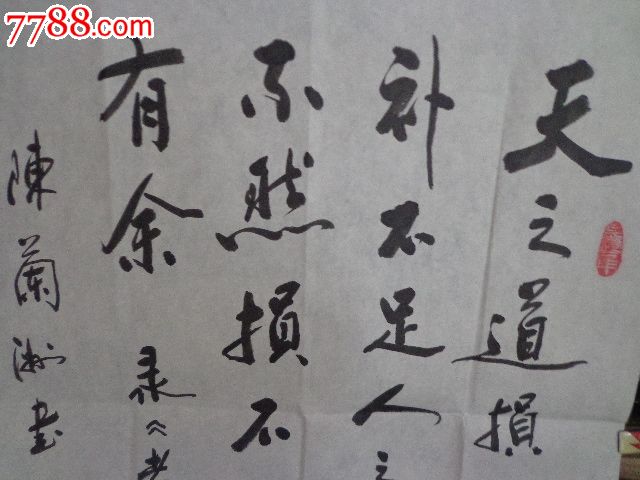 7788.com
天之道損
补不足人之
不然损不
有余 录《老
陳蘭洲書